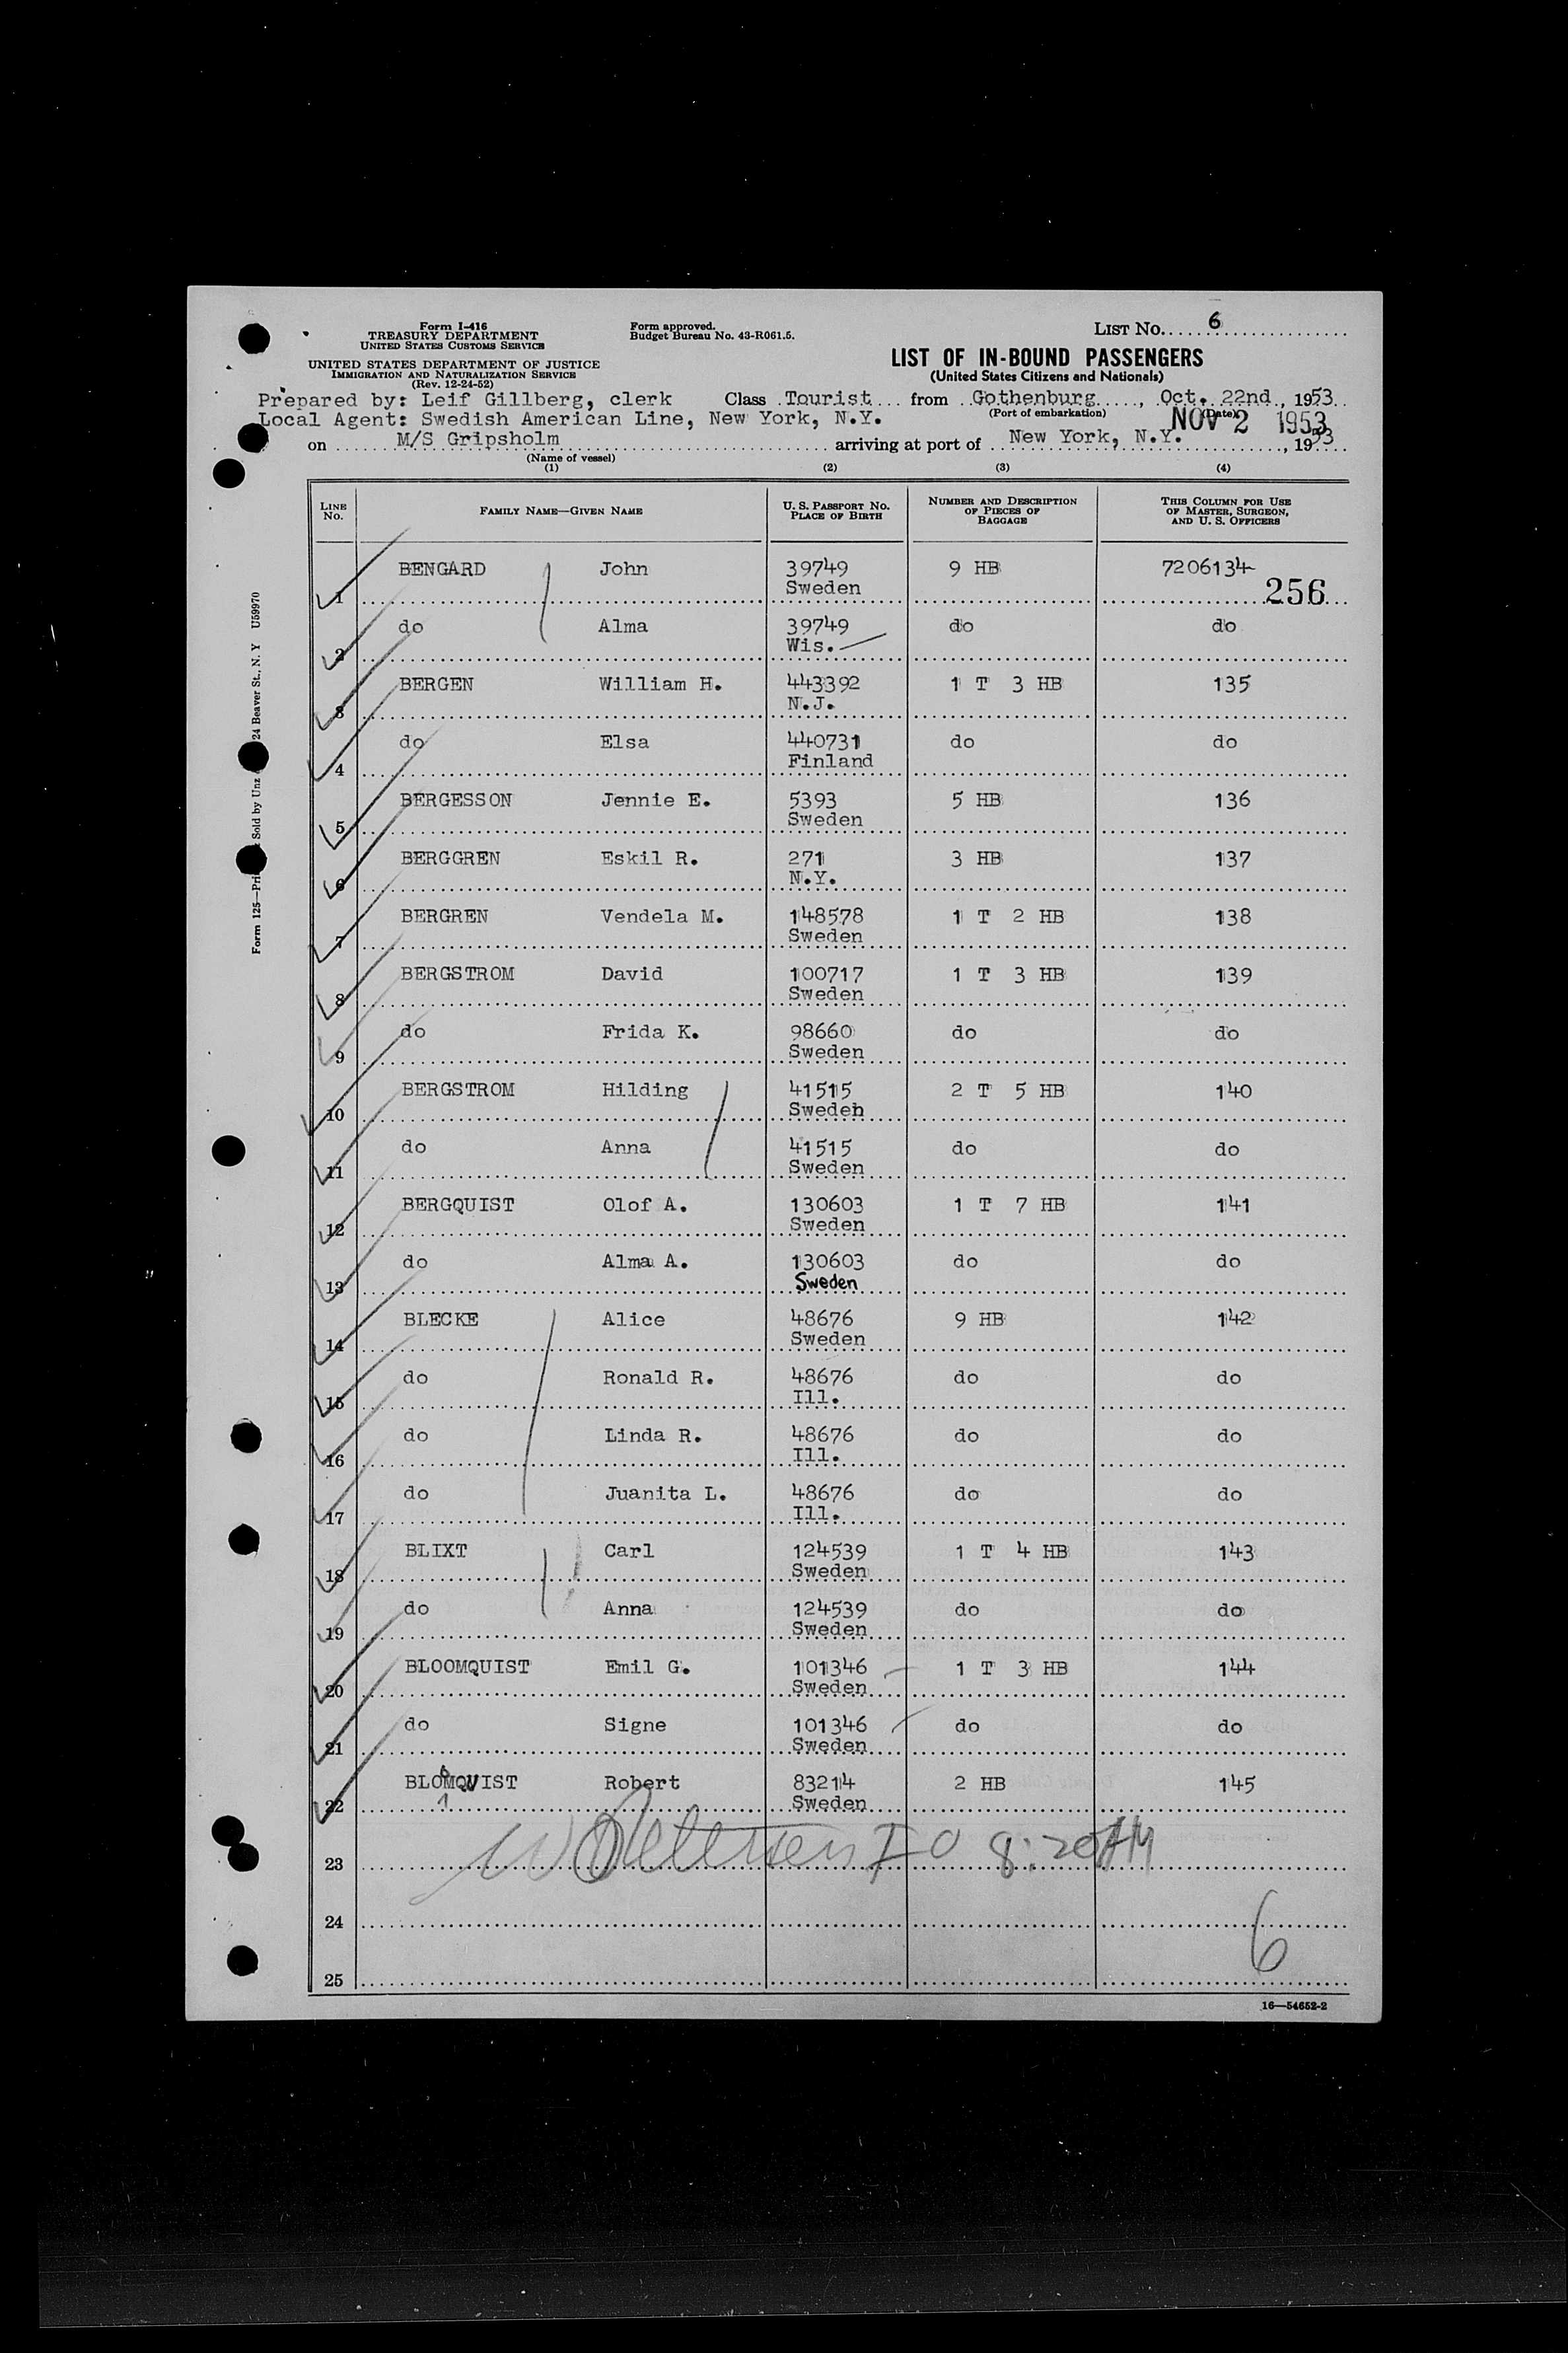 Form I-416
TREASURY DEPARTMENT
UNITED STATES CUSTOMS SERVICE
UNITED STATES DEPARTMENT OF JUSTICE
IMMIGRATION AND NATURALIZATION SERVICE
(Rev. 12-24-52)
Form approved.
Budget Bureau No. 43-R061.5.
LIST NO. 6
LIST OF IN-BOUND PASSENGERS
(United States Citizens and Nationals)
Prepared by: Leif Gillberg, clerk Class Tourist from Gothenburg, Oct. 22nd, 1953
(Port of embarkation) (Date)
Local Agent: Swedish American Line, New York, N.Y. NOV 2 1953
on M/S Gripsholm arriving at port of New York, N.Y., 1953
(Name of vessel)
(1) (2) (3) (4)
LINE NO. FAMILY NAME—GIVEN NAME U. S. PASSPORT NO. PLACE OF BIRTH NUMBER AND DESCRIPTION OF PIECES OF BAGGAGE THIS COLUMN FOR USE OF MASTER, SURGEON, AND U. S. OFFICERS
1 BENGARD John 39749 Sweden 9 HB 7206134 256
2 do Alma 39749 Wis. do do
3 BERGEN William H. 443392 N.J. 1 T 3 HB 135
4 do Elsa 440731 Finland do do
5 BERGESSON Jennie E. 5393 Sweden 5 HB 136
6 BERGGREN Eskil R. 271 N.Y. 3 HB 137
7 BERGREN Vendela M. 148578 Sweden 1 T 2 HB 138
8 BERGSTROM David 100717 Sweden 1 T 3 HB 139
9 do Frida K. 98660 Sweden do do
10 BERGSTROM Hilding 41515 Sweden 2 T 5 HB 140
11 do Anna 41515 Sweden do do
12 BERGQUIST Olof A. 130603 Sweden 1 T 7 HB 141
13 do Alma A. 130603 Sweden do do
14 BLECKE Alice 48676 Sweden 9 HB 142
15 do Ronald R. 48676 Ill. do do
16 do Linda R. 48676 Ill. do do
17 do Juanita L. 48676 Ill. do do
18 BLIXT Carl 124539 Sweden 1 T 4 HB 143
19 do Anna 124539 Sweden do do
20 BLOOMQUIST Emil G. 101346 Sweden 1 T 3 HB 144
21 do Signe 101346 Sweden do do
22 BLOMQVIST Robert 83214 Sweden 2 HB 145
23 8:20 AM
24
6
25
16—54652-2
24 Beaver St., N. Y U59970
Sold by Unz
Form 125—